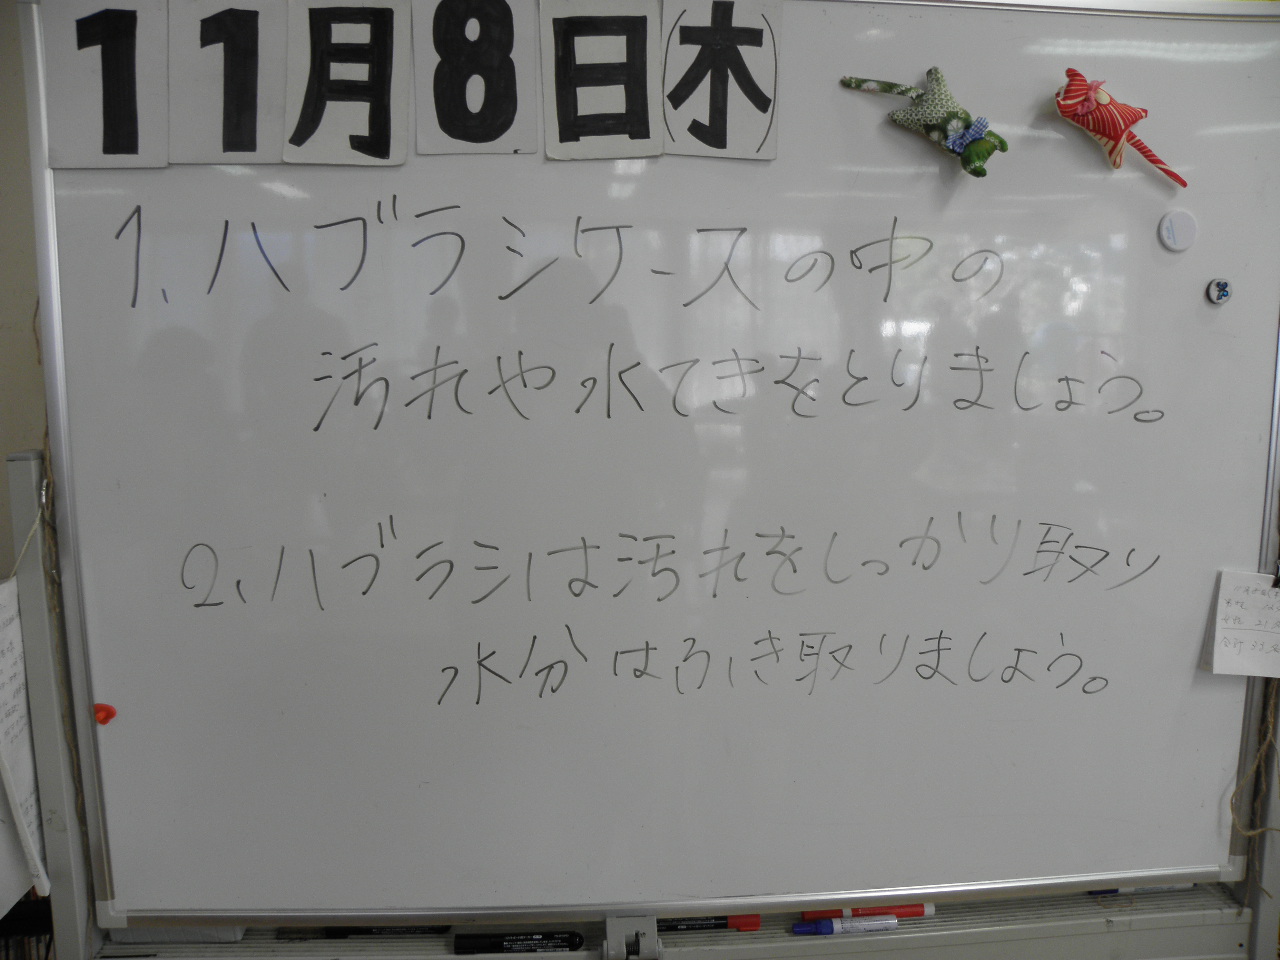 11月8日(木)
1、ハブラシケースの中の
汚れや水てきをとりましょう。
2、ハブラシは汚れをしっかり取り
水分はふき取りましょう。